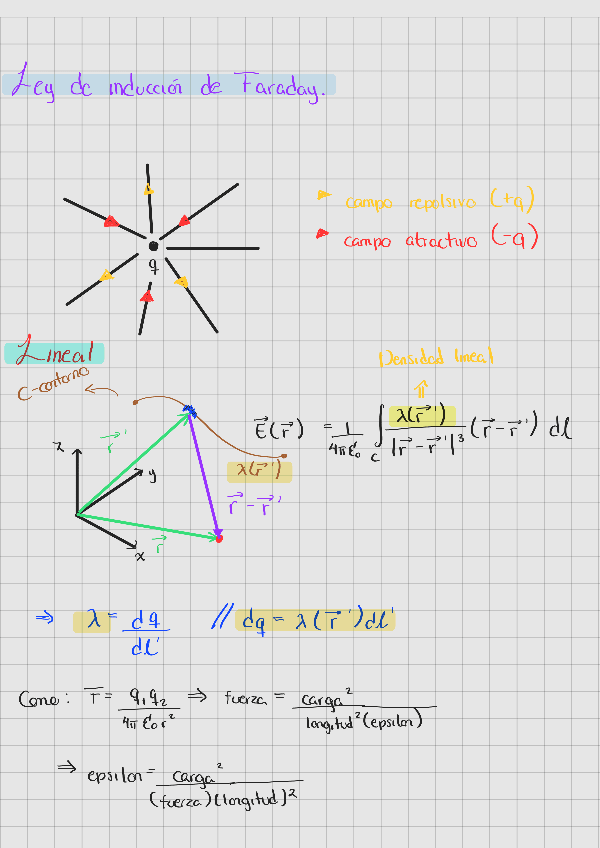 Ley de inducción de Faraday.
campo repulsivo (+q)
campo atractivo (-q)
q
Lineal
C-contorno
Densidad lineal
⇑
E⃗(r⃗) = 1/(4πε₀) ∫_C λ(r⃗')/|r⃗ - r⃗'|³ (r⃗ - r⃗') dl
r⃗'
λ(r⃗')
z
y
r⃗ - r⃗'
r⃗
x
⇒ λ = dq/dl' // dq = λ(r⃗')dl'
Como: F = q₁q₂/(4π ε₀ r²) ⇒ fuerza = carga²/(longitud² (epsilon))
⇒ epsilon = carga²/((fuerza)(longitud)²)